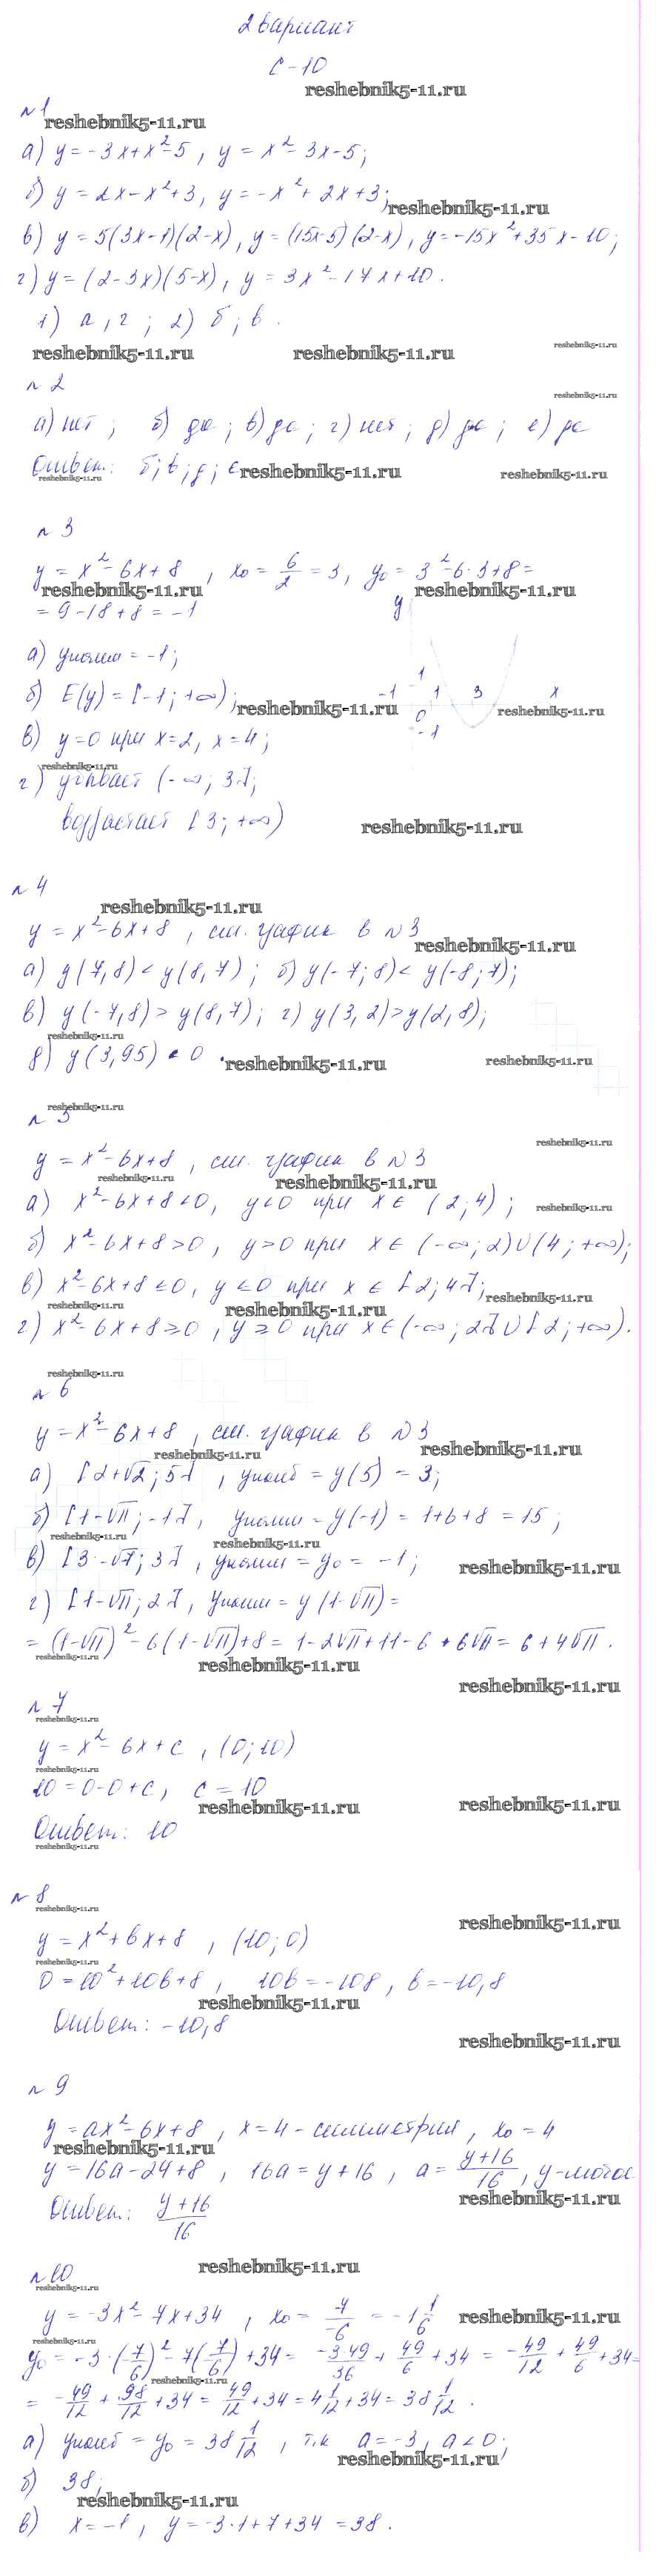 2 вариант
С-10
reshebnik5-11.ru
№1
reshebnik5-11.ru
а) y = -3x+x²-5, y = x²-3x-5;
б) y = 2x-x²+3, y = -x²+2x+3;
reshebnik5-11.ru
в) y = 5(3x-1)(2-x), y = (15x-5)(2-x), y = -15x²+35x-10;
г) y = (2-3x)(5-x), y = 3x²-17x+10.
1) а, г; 2) б; в.
reshebnik5-11.ru reshebnik5-11.ru reshebnik5-11.ru
№2
reshebnik5-11.ru
а) нет; б) да; в) да; г) нет; д) да; е) да
Ответ: б; в; д; е
reshebnik5-11.ru reshebnik5-11.ru reshebnik5-11.ru
№3
y = x²-6x+8, x₀ = 6/2 = 3, y₀ = 3²-6·3+8=
reshebnik5-11.ru reshebnik5-11.ru
= 9-18+8 = -1
y
а) yнаим = -1;
1
б) E(y) = [-1; +∞);
reshebnik5-11.ru
-1 1 3 x
0
reshebnik5-11.ru
-1
в) y=0 при x=2, x=4;
reshebnik5-11.ru
г) убывает (-∞; 3];
возрастает [3; +∞)
reshebnik5-11.ru
№4
reshebnik5-11.ru
y = x²-6x+8, см. график в №3
reshebnik5-11.ru
а) y(7,8) < y(8,7); б) y(-7,8) < y(-8,7);
в) y(-7,8) > y(8,7); г) y(3,2) > y(2,8);
reshebnik5-11.ru
д) y(3,95) < 0.
reshebnik5-11.ru reshebnik5-11.ru
reshebnik5-11.ru
№5
reshebnik5-11.ru
y = x²-6x+8, см. график в №3
reshebnik5-11.ru reshebnik5-11.ru
а) x²-6x+8<0, y<0 при x ∈ (2; 4);
reshebnik5-11.ru
б) x²-6x+8>0, y>0 при x ∈ (-∞; 2)∪(4; +∞);
в) x²-6x+8≤0, y≤0 при x ∈ [2; 4];
reshebnik5-11.ru
reshebnik5-11.ru reshebnik5-11.ru
г) x²-6x+8≥0, y≥0 при x∈(-∞; 2]∪[2; +∞).
reshebnik5-11.ru
№6
y = x²-6x+8, см. график в №3
reshebnik5-11.ru reshebnik5-11.ru
а) [2+√2; 5], yнаиб = y(5) = 3;
б) [1-√11; -1], yнаим = y(-1) = 1+6+8 = 15;
reshebnik5-11.ru reshebnik5-11.ru
в) [3-√7; 3], yнаим = y₀ = -1;
reshebnik5-11.ru
г) [1-√11; 2], yнаим = y(1-√11) =
= (1-√11)²-6(1-√11)+8 = 1-2√11+11-6+6√11 = 6+4√11.
reshebnik5-11.ru reshebnik5-11.ru
reshebnik5-11.ru
№7
reshebnik5-11.ru
y = x²-6x+c, (0; 10)
reshebnik5-11.ru
10=0-0+c, c = 10
reshebnik5-11.ru reshebnik5-11.ru
Ответ: 10
reshebnik5-11.ru
№8
reshebnik5-11.ru
reshebnik5-11.ru
y = x²+bx+8, (10; 0)
reshebnik5-11.ru
0=10²+10b+8, 10b=-108, b=-10,8
reshebnik5-11.ru
Ответ: -10,8
reshebnik5-11.ru
№9
y=ax²-6x+8, x=4 - симметрии, x₀=4
reshebnik5-11.ru
y=16a-24+8, 16a=y+16, a= y+16/16, y-любое
reshebnik5-11.ru
Ответ: y+16/16
reshebnik5-11.ru
№10
reshebnik5-11.ru
y = -3x²-7x+34, x₀ = 7/-6 = -1 1/6
reshebnik5-11.ru
reshebnik5-11.ru
y₀ = -3·(-7/6)²-7(7/6)+34 = -3·49/36 + 49/6 + 34 = -49/12 + 49/6 + 34=
reshebnik5-11.ru
= -49/12 + 98/12 + 34 = 49/12 + 34 = 4 1/12 + 34 = 38 1/12.
а) yнаиб = y₀ = 38 1/12, т.к. a=-3, a<0;
reshebnik5-11.ru
б) 38;
reshebnik5-11.ru
в) x=-1, y=-3·1+7+34=38.